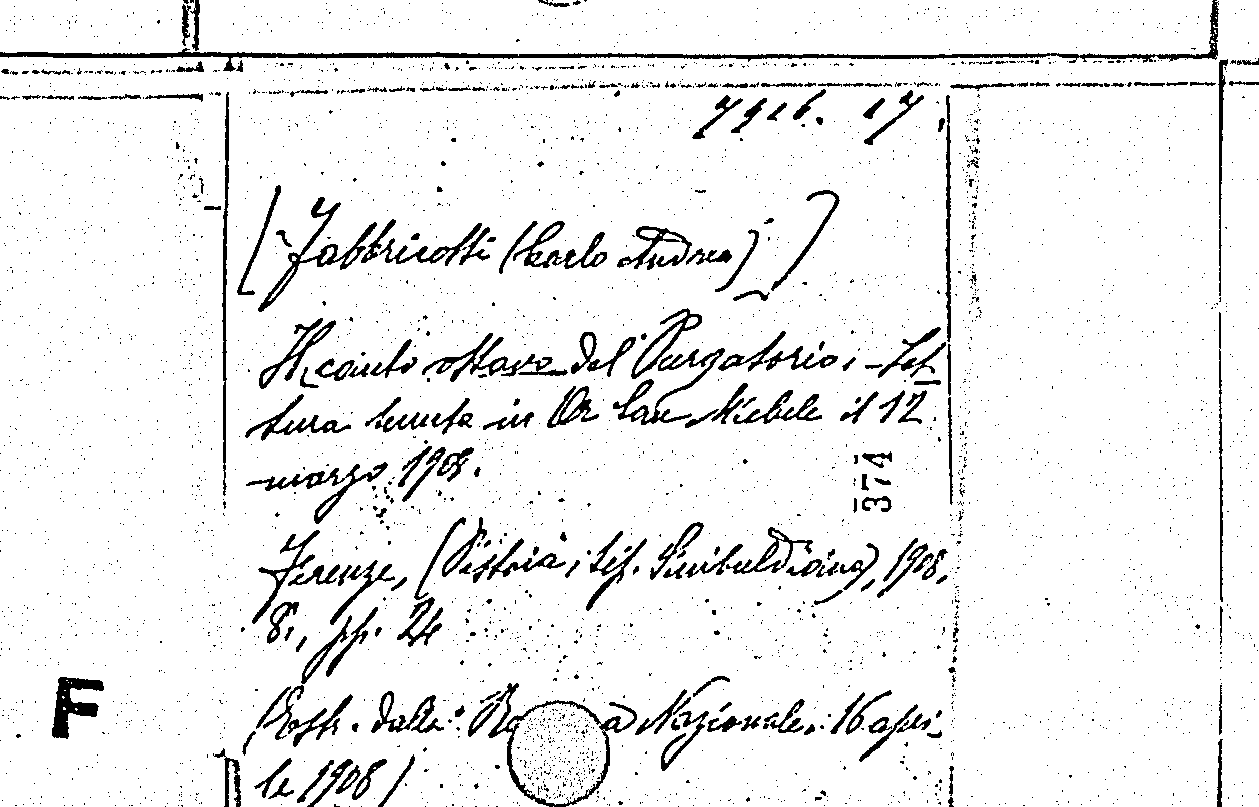 7926. 17.
[Fabbricotti (Carlo Andrea)]
Il canto ottavo del Purgatorio, Let-
tura tenuta in Or San Michele il 12
marzo 1908.
374
Firenze, (Pistoia, tip. Sinibuldiana), 1908,
8., pp. 24
F
(Estr. dalla: Nazionale, 16 apri-
le 1908)